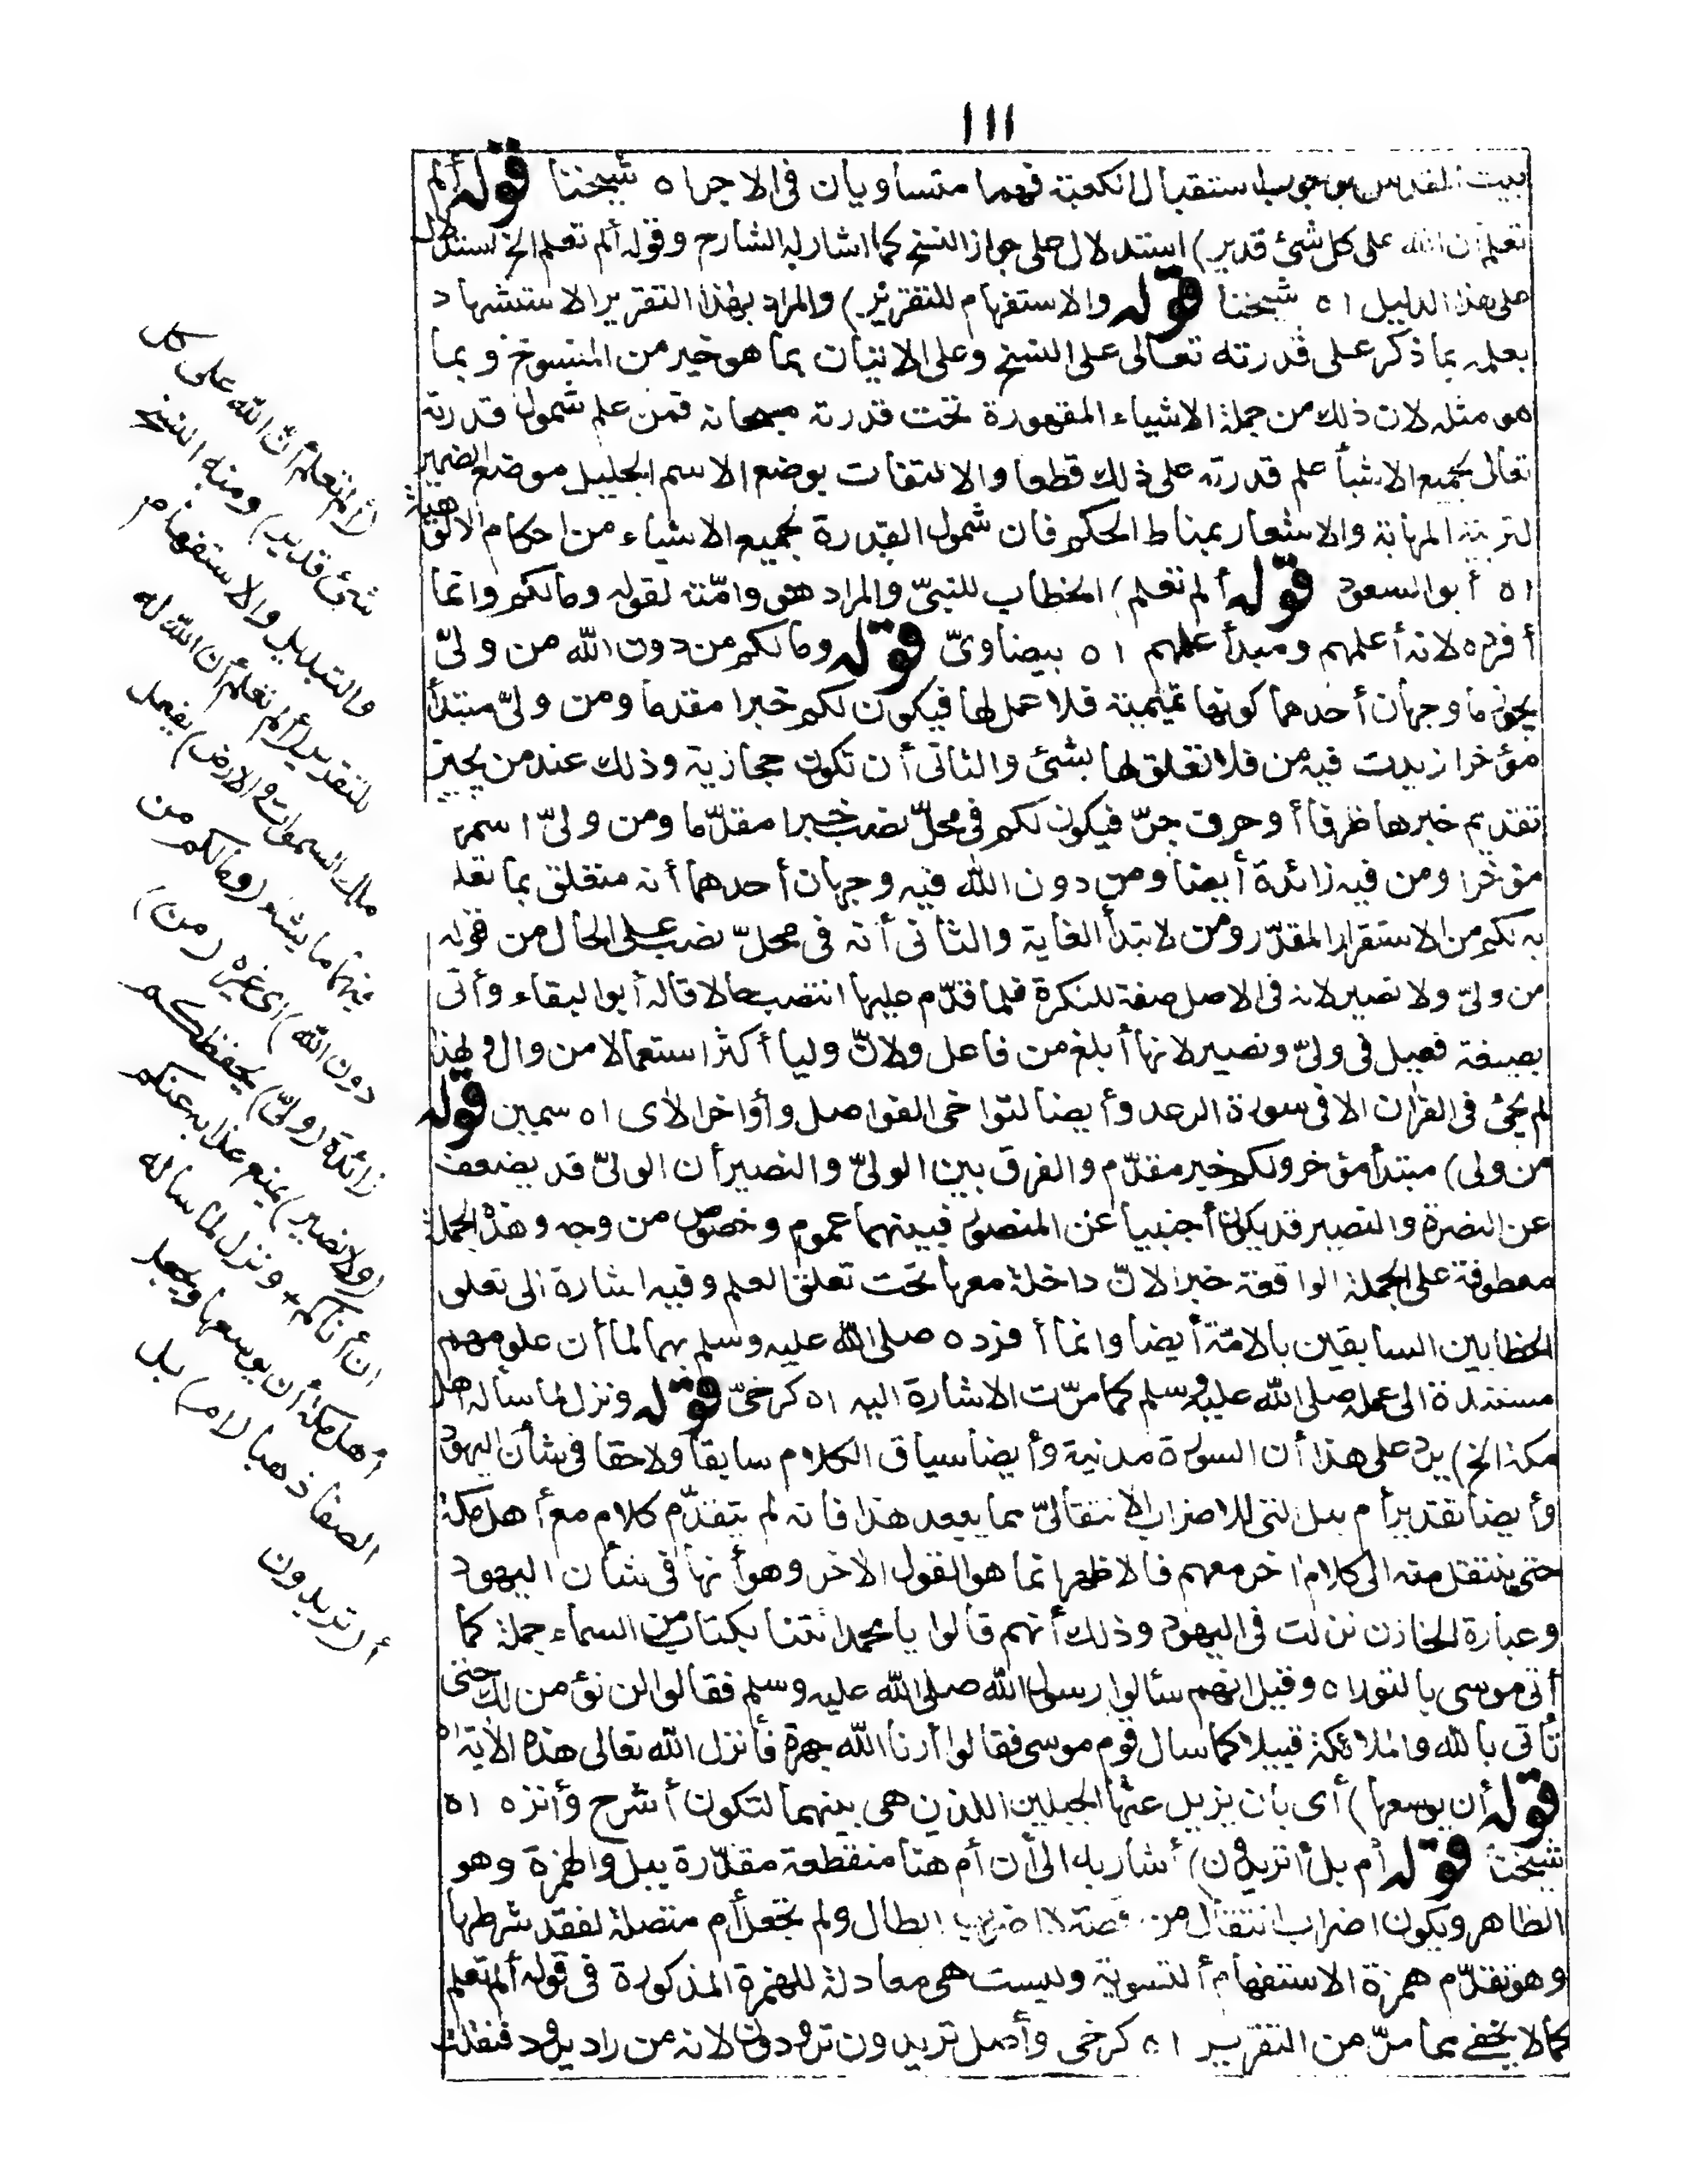 ١١١
بيت المقدس بوجوب استقبال الكعبة فهما متساويان في الاجر اه شيخنا قوله ألم
تعلم أن الله على كل شئ قدير) استدلال على جواز النسخ كما اشار له الشارح وقوله ألم تعلم الخ استدلال
على هذا الدليل اه شيخنا قوله والاستفهام للتقرير) والمراد بهذا التقرير الاستشهاد
بعلمه بما ذكر على قدرته تعالى على النسخ وعلى الاتيان بما هو خير من المنسوخ وبما
هو مثله لان ذلك من جملة الاشياء المقهورة تحت قدرته سبحانه فمن علم شمول قدرته
تعالى لجميع الاشيا علم قدرته على ذلك قطعا والالتفات بوضع الاسم الجليل موضع الضمير
لتربية المهابة والاشعار بمناط الحكم فان شمول القدرة لجميع الاشياء من احكام الالوهية
اه أبو السعود قوله ألم تعلم) الخطاب للنبيّ والمراد هو وامّته لقوله ومالكم وانما
أفرده لانه أعلمهم ومبدأ علمهم اه بيضاويّ قوله ومالكم من دون الله من وليّ
يجوز ما وجهان أحدهما كونها تميمية فلا عمل لها فيكون لكم خبرا مقدما ومن وليّ مبتدأ
مؤخرا زيدت فيه من فلا تعلق لها بشئ والثانى أن تكون حجازية وذلك عند من يجيز
تقديم خبرها ظرفا أو حرف جرّ فيكون لكم في محلّ نصب خبرا مقدّما ومن وليّ اسمها
مؤخرا ومن فيه زائدة أيضا ومن دون الله فيه وجهان أحدهما أنه متعلق بما تعلق
به لكم من الاستقرار المقدّر ومن لابتدأ الغاية والثانى أنه في محلّ نصب على الحال من قوله
من وليّ ولا نصير لانه في الاصل صفة للنكرة فلما قدّم عليها انتصب حالا قاله أبو البقاء وأتى
بصيغة فعيل في وليّ ونصير لانها أبلغ من فاعل ولانّ وليا أكثر استعمالا من وال ولهذا
لم يجئ في القرآن الا في سورة الرعد وأيضا لتواخى الفواصل وأواخر الآى اه سمين قوله
من ولى) مبتدأ مؤخر ولكم خبر مقدّم والفرق بين الوليّ والنصير أن الوليّ قد يضعف
عن النصرة والنصير قد يكون أجنبيا عن المنصور فبينهما عموم وخصوص من وجه وهذه الجملة
معطوفة على الجملة الواقعة خبرا لانّ داخلة معها تحت تعلق العلم وفيه اشارة الى تعلق
الخطابين السابقين بالامّة أيضا وانما أفرده صلى الله عليه وسلم بهما لما أن علومهم
مستندة الى عمله صلى الله عليه وسلم كما مرّت الاشارة اليه اه كرخىّ قوله ونزل لما سأله اهل
مكة الخ) يرد على هذا أن السورة مدنية وأيضا سياق الكلام سابقا ولاحقا في شأن اليهود
وأيضا تقدير أم ببل التى للاضراب الانتقالىّ مما يبعد هذا فانه لم يتقدّم كلام مع أهل مكة
حتى ينتقل منه الى كلام اخر معهم فالاظهر انما هو القول الآخر وهو أنها في شأن اليهود
وعبارة الخازن نزلت في اليهود وذلك أنهم قالوا يا محمد ائتنا بكتاب من السماء جملة كما
أتى موسى بالتوراه وقيل انهم سألوا رسول الله صلى الله عليه وسلم فقالوا لن نؤمن لك حتى
تأتى بالله والملائكة قبيلا كما سال قوم موسى فقالوا أرنا الله جهرة فأنزل الله تعالى هذه الآية اه
قوله أن يوسعها) أى بأن يزيل عنها الجبلين اللذين هى بينهما لتكون أشرح وأنزه اه
شيخنا قوله أم بل أتريدون) أشار به الى أن أم هنا منقطعة مقدّرة ببل والهمزة وهو
الظاهر ويكون اضراب انتقال من قصة لا اضراب ابطال ولم تجعل أم متصلة لفقد شرطها
وهو تقدّم همزة الاستفهام أو التسوية وليست هى معادلة للهمزة المذكورة في قوله ألم تعلم
كما لا يخفى مما مرّ من التقرير اه كرخى وأصل تريدون ترودون لانه من راد يرود فنقلت
(ألم تعلم أنّ الله على كل
شئ قدير) ومنه النسخ
والتبديل والاستفهام
للتقرير (ألم تعلم أن الله له
ملك السموات والارض) يفعل
فيهما ما يشاء (ومالكم من
دون الله) أى غيره (من)
زائدة (وليّ) يحفظكم
(ولا نصير) يمنع عذابه عنكم
ان أتاكم ونزل لما سأله
أهل مكة أن يوسعها ويجعل
الصفا ذهبا (أم) بل
أ(تريدون